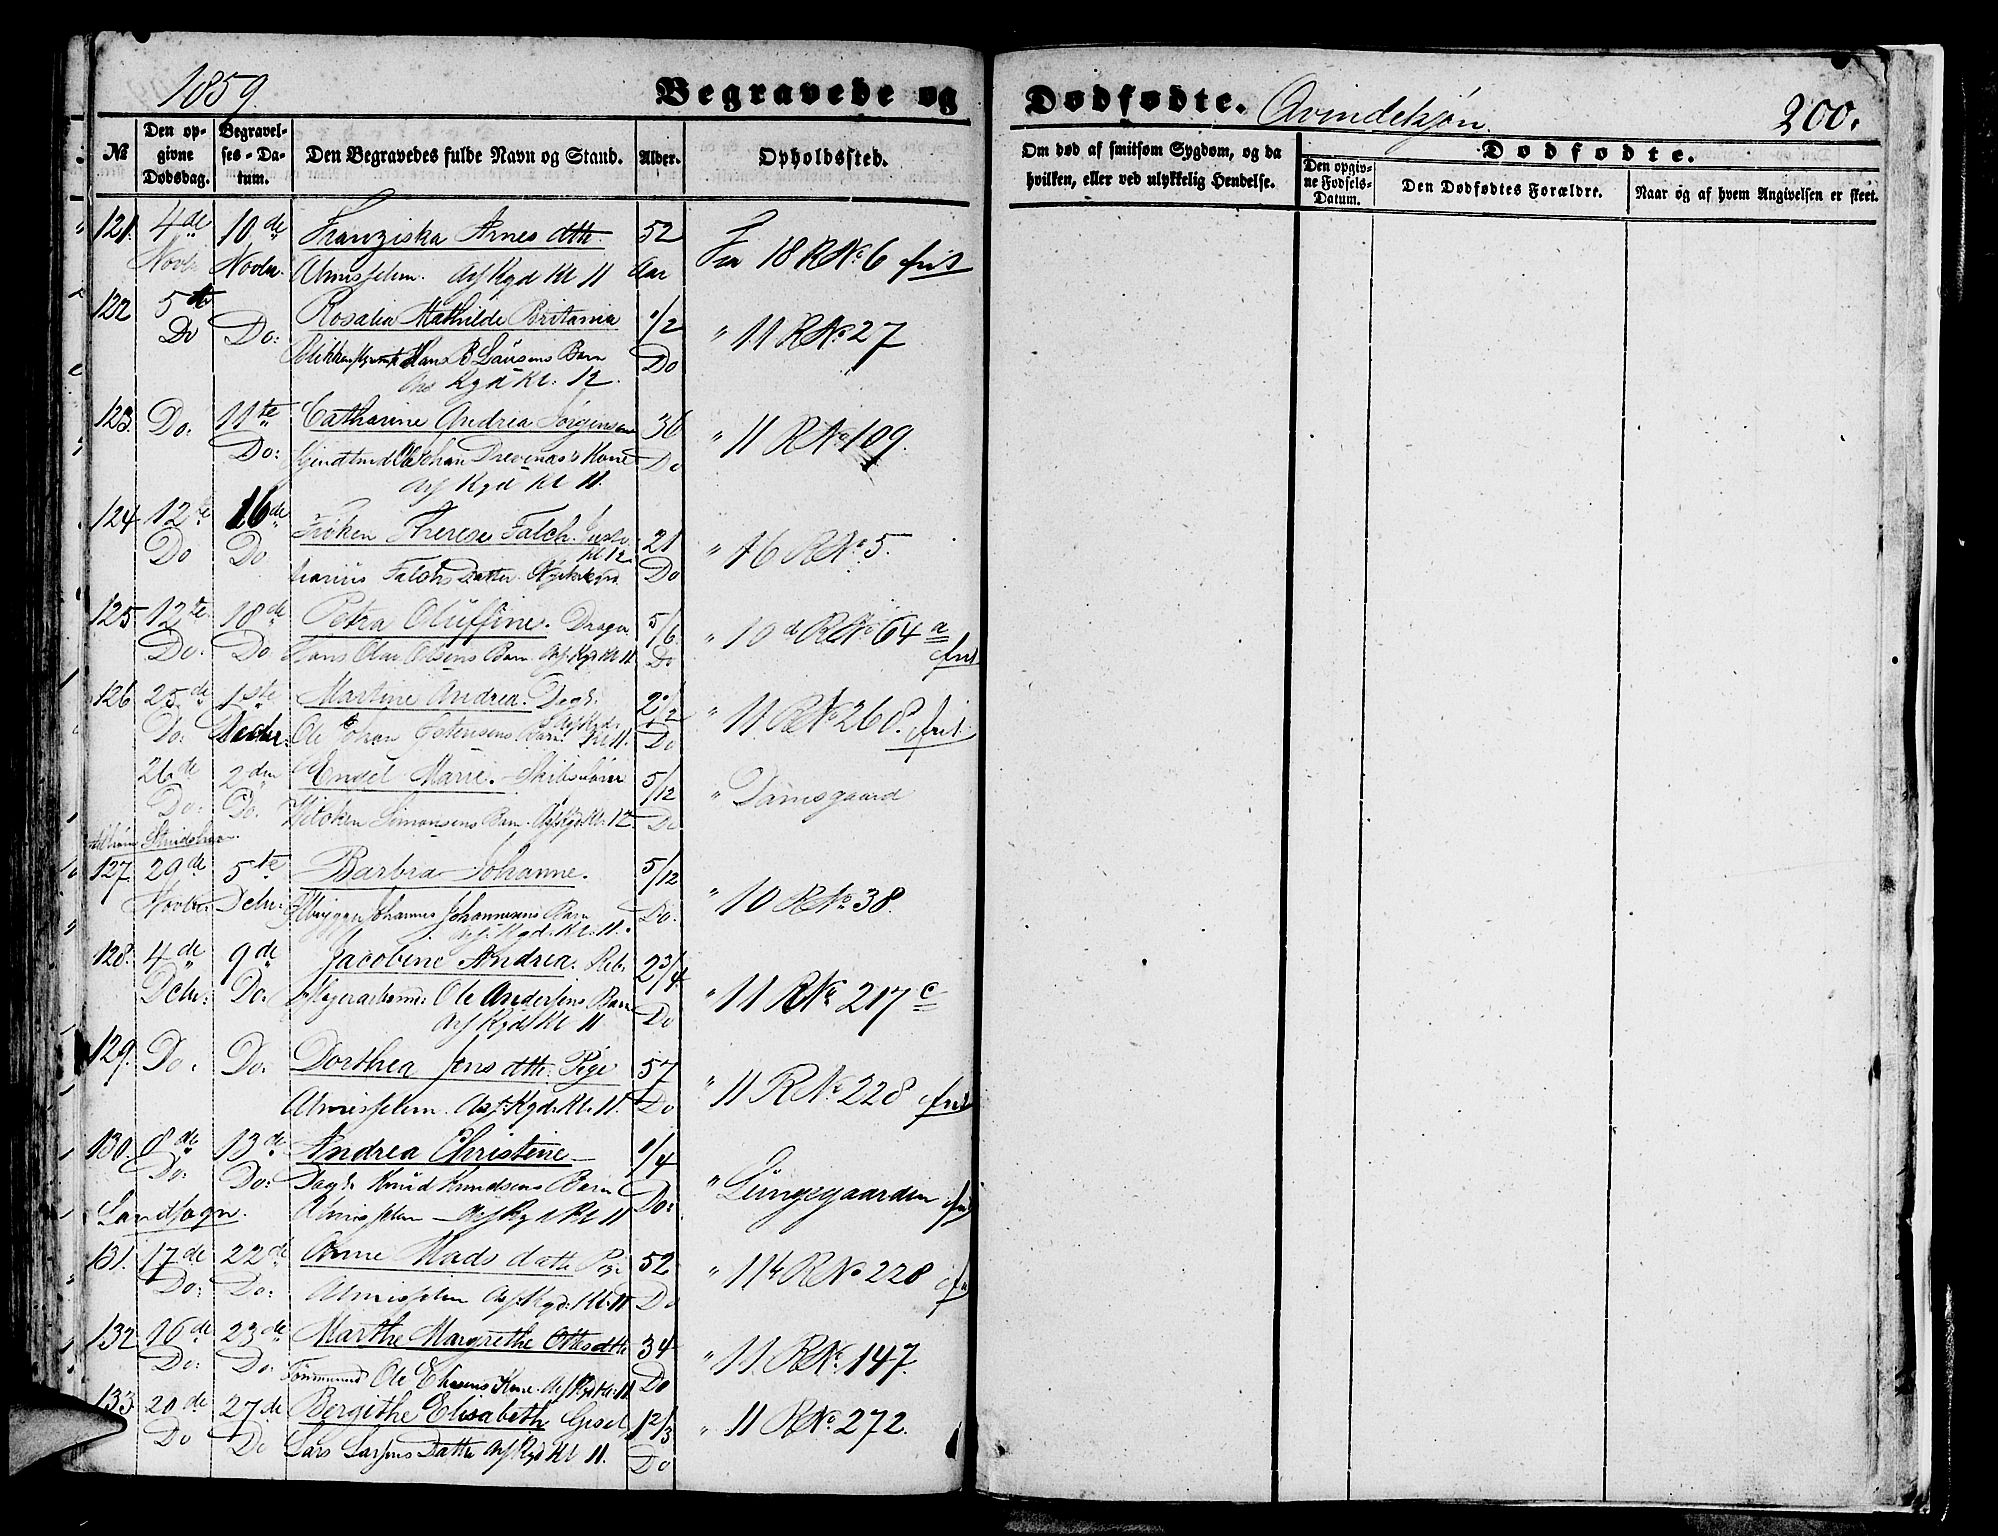 1859.
Begravede og
Dødfødte. Qvindekjøn.
200.
№
Den op-
givne
Dødsdag.
Begravel-
ses-Da-
tum.
Den Begravedes fulde Navn og Stand.
Alder.
Opholdssted.
Om død af smitsom Sygdom, og da
hvilken, eller ved ulykkelig Hendelse.
Dødfødte.
Den opgiv-
ne Fødsels-
Datum.
Den Dødfødtes Forældre.
Naar og af hvem Angivelsen er skeet.
121. 4de 10de Franziska Arnes dtr. 52 18 R No 6 frit
Novbr Novbr. Almisselem. Asf Kgd Kl 11 Aar
122 5te Rosalia Mathilde Britania 1/2 " 11 R No 27
Do Do: Hans B Lausens Barn Do
Kgd Kl. 12.
123. Do: 11te Catharine Andrea Jørgensen 36 " 11 R No 109.
Do: Johan Kone Do
Asf Kgd Kl 11.
124 12te 16de Frøken Therese Falch. 21 " 16 R No 5.
Do Do Kl 12
Falchs Datter. Do
125 12te 18de Petra Oluffine. 5/6 " 10 d R No 64 a
Do. Do Hans Olai Olsens Barn Asf. Kgd Kl 11. Do frit
126 25de 1ste Martine Andrea. Dags. 2 1/2 " 11 R No 268. frit
Do: Decbr. Ole Johan Barn. Asf Kgd Kl 11. Do
26de 2den Engel Marie. 5/12 " Damsgaard
Do: Do. Simonsens Barn. Asf Kgd. Kl. 12. Do
127. 29de 5te Barbra Johanne. 5/12 " 10 R No 38.
Novbr. Dcbr. Johannes Johannesens Barn Do.
Asf. Kgd. Kl. 11.
128. 4de 9de Jacobine Andrea. Reb- 2 3/4 " 11 R No 217 c
Dcbr: Do. Ole Andersens Barn Do
Asf Kgd Kl 11
129. Do. Do. Dorthea Jens dtr. Pige 57 " 11 R No 228 frit
Almisselem. Asf. Kgd. Kl. 11. Do
130. 8de 13de Andrea Christine 1/4 " Lungegaarden
Do: Do: Dags. Knud Knudsens Barn Do:
Landsogn. Almisselem Asf Kgd Kl 11
131. 17de 22de Anne Mads datter Pige 52 " 11 R No 228
Do: Do: Almisselem Asf. Kgd: Kl. 11 Do
132 16de 23de Marthe Margrethe Ottesdtr 34 " 11. R No. 147.
Do: Do: Tømmermand Ole Kone. Asf Kgd Kl. 11 Do
133. 20de 27de Bergithe Elisabeth 1 2/3 " 11 R No. 272.
Do Do Lars Larsens Datter Asf Kgd Kl 11. Do